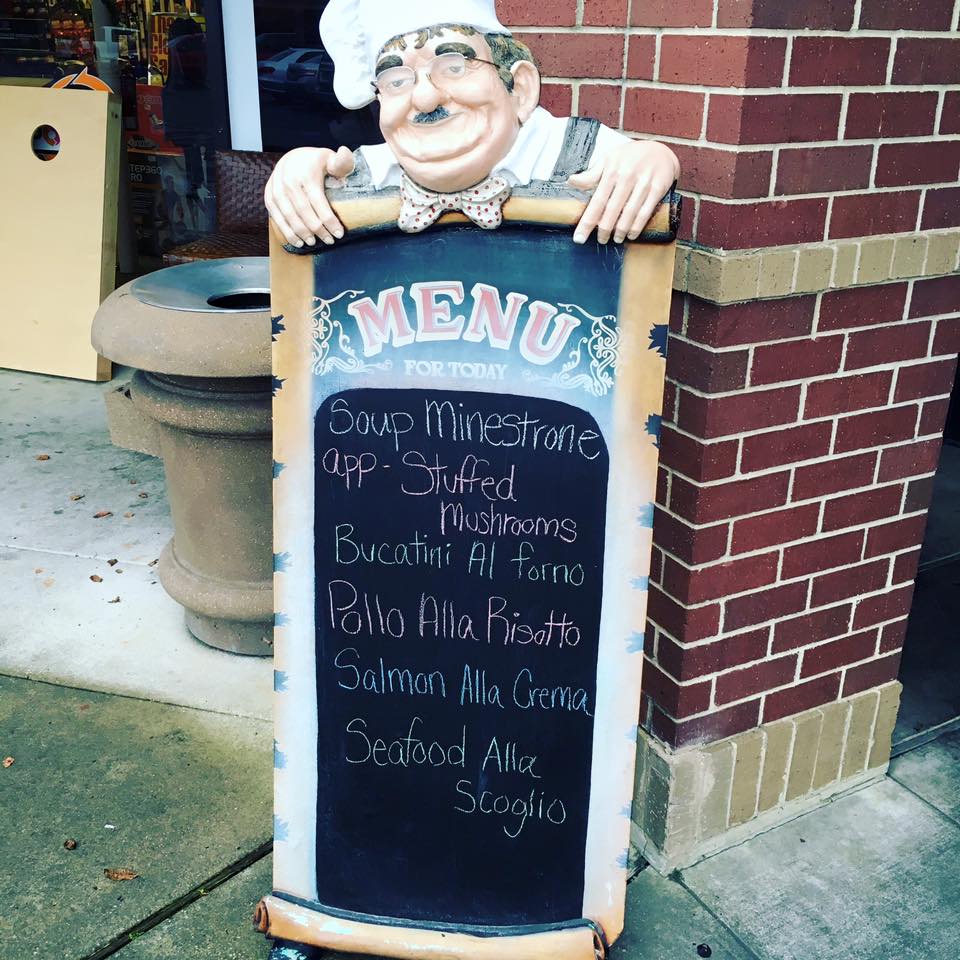 MENU
FOR TODAY
Soup Minestrone
app - Stuffed
Mushrooms
Bucatini Al forno
Pollo Alla Risotto
Salmon Alla Crema
Seafood Alla
Scoglio